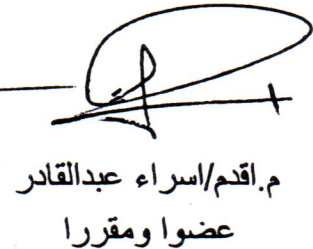 م.اقدم/اسراء عبدالقادر
عضوا ومقررا